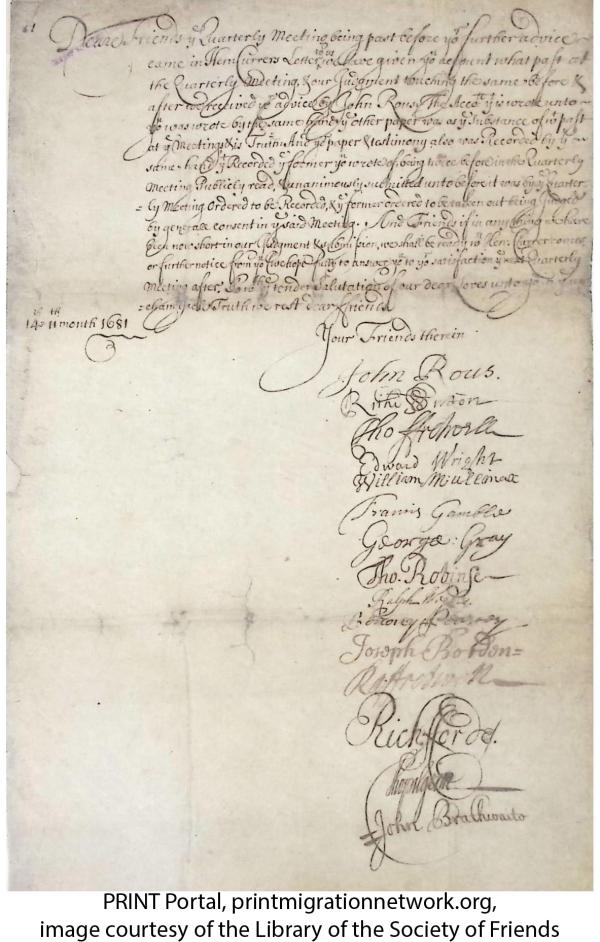 61
Deare Friends yͤ Quarterly Meeting being past before yͤ further advice
came in Hen: Currers Letter, we have given yͦ account what past at
the Quarterly Meeting, & our Judgment touching the same before &
after we received yͤ advice by John Rous, The Accoᵗ yᵗ is wrote unto
yͦ was wrote by the same hand, yͤ other paper was as yͤ substance of wͭ past
at yͤ Meeting & is Truth. And yͤ paper & testimony also was Recorded by yͤ
same hand yͭ Recorded yͤ former yͭ wrote of, being twice before in the Quarterly
Meeting Publicly read, & unanimously submitted unto before it was by yͤ Quarter
=ly Meeting Ordered to be Recorded, & yͤ former ordered to be taken out being
by generall consent in yͤ said Meeting. And Friends if in any thing we have
been now short in our Judgment & submission, we shall be ready
or further notice from yͦ to answer yͦ to yͦ satisfaction yͤ next Quarterly
Meeting after, So wᵗʰ yͤ tender Salutation of our dear loves unto yͦ in yͤ un
=changeable Truth we rest dear friends
14ᵗʰ 11ᵗʰ month 1681
Your Friends therein
John Rous.
Richᵈ Sutton
Tho ffretwell
Edward Wright
William Mullinax
Francis Gamble
George: Gray
Tho. Robinse
Ralph
Joseph Borden=
Ry: ffretwell
Rich: fford.
John Brathwaite
PRINT Portal, printmigrationnetwork.org,
image courtesy of the Library of the Society of Friends